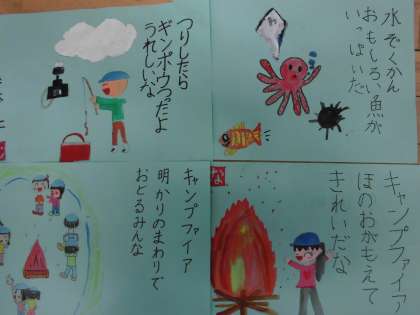 つりしたら
ギンポウつだよ
うれしいな
水ぞくかん
おもしろい魚が
いっぱいだ
キャンプファイア
明かりのまわりで
おどるみんな
キャンプファイア
ほのおがもえて
きれいだな
な